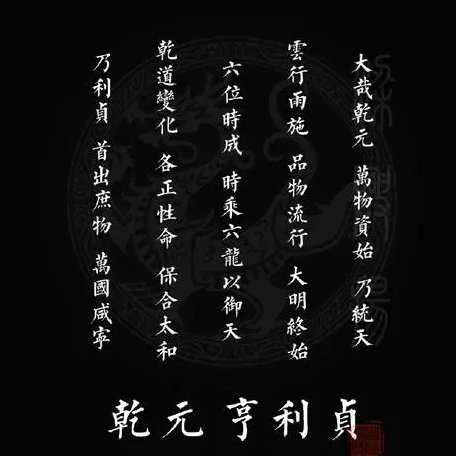 大哉乾元 萬物資始 乃統天
雲行雨施 品物流行 大明終始
六位時成 時乘六龍以御天
乾道變化 各正性命 保合太和
乃利貞 首出庶物 萬國咸寧
乾元亨利貞